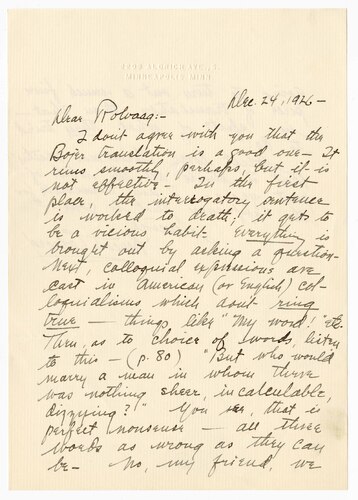 MINNEAPOLIS, MINN.
Dec. 24, 1926 -
Dear Rolvaag:-
I don't agree with you that the
Bojer translation is a good one - It
runs smoothly, perhaps, but it is
not effective - In the first
place, the interrogatory sentence
is worked to death; it gets to
be a vicious habit. Everything is
brought out by asking a question -
Next, colloquial expressions are
cast in American (or English) col-
loquialisms which don't ring
true - things like "My word!" etc.
Then, as to choice of words, listen
to this - (p. 80) "But who would
marry a man in whom there
was nothing sheer, incalculable,
dizzying?" You see, that is
perfect nonsense - all three
words as wrong as they can
be - No, my friend, we